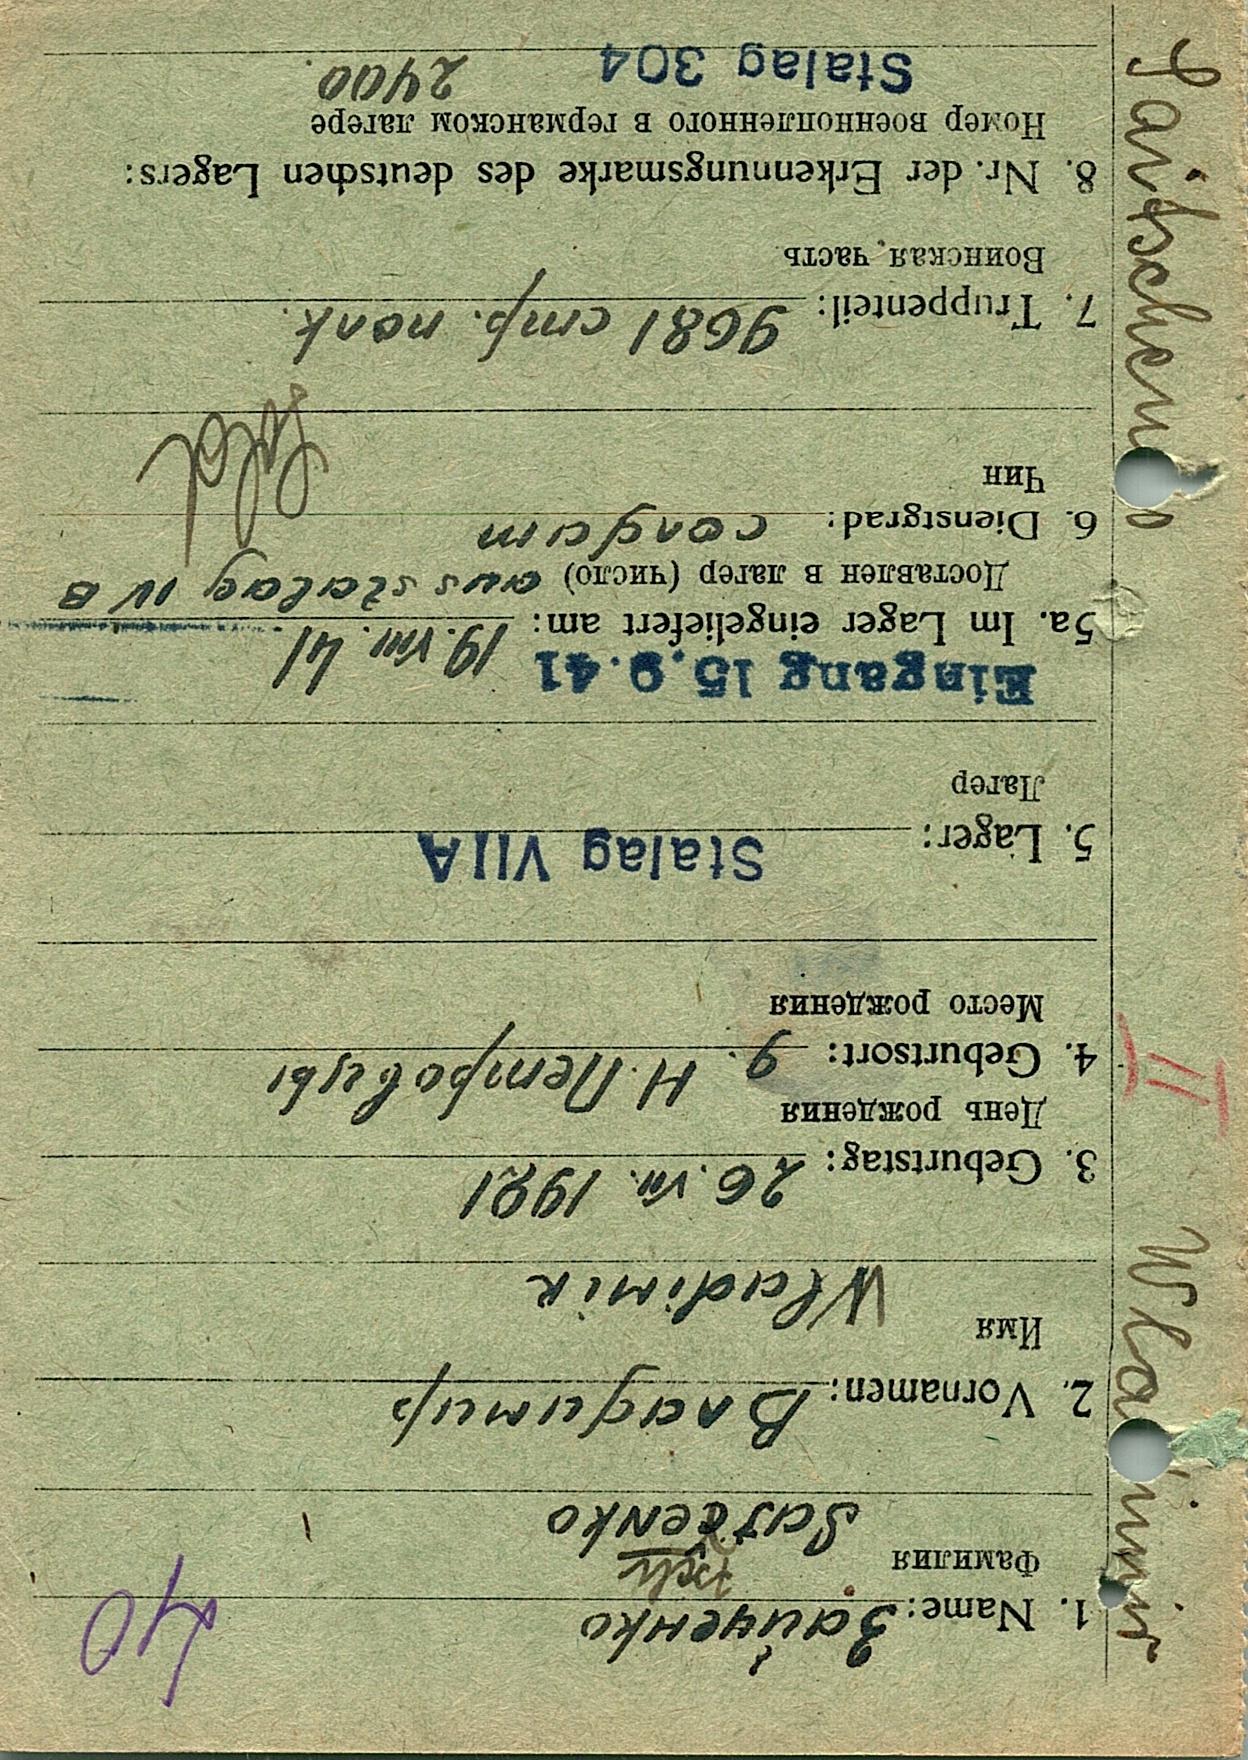 40
1. Name: Зайченко
Фамилия
tsch
Sajčenko
2. Vornamen: Владимир
Имя
Wladimir
3. Geburtstag: 26. VII. 1921
День рождения
4. Geburtsort: д. Н. Петровцы
Место рождения
5. Lager: Stalag VIIA
Лагер
Eingang 15. 9. 41
5a. Im Lager eingeliefert am: 19. VIII. 41
Доставлен в лагер (число) aus stalag IV B
6. Dienstgrad: солдат
Чин
Sold.
7. Truppenteil: 9681 стр. полк.
Воинская часть
8. Nr. der Erkennungsmarke des deutschen Lagers:
Номер военнопленного в германском лагере
Stalag 304 2400.
Saitschenko II Wladimir